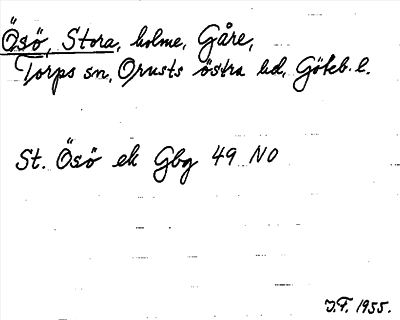 Ösö, Stora, holme, Gåre,
Torps sn, Orusts östra hd, Göteb. l.
St. Ösö ek Gbg 49 NO
J.F. 1955.